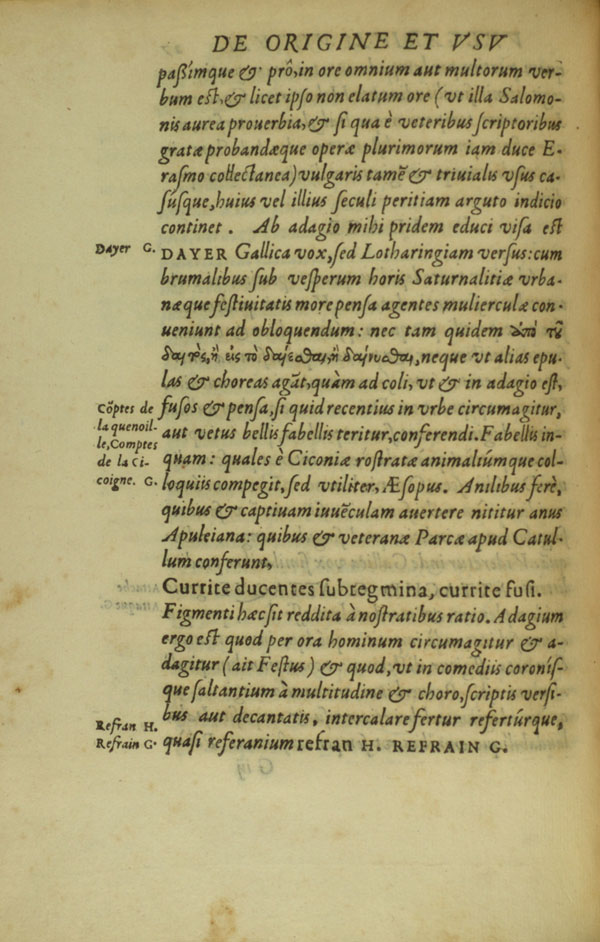 DE ORIGINE ET VSV
paßimque & prô, in ore omnium aut multorum ver-
bum est, & licet ipso non elatum ore (vt illa Salomo-
nis aurea prouerbia, & si qua è veteribus scriptoribus
gratæ probandæque operæ plurimorum iam duce E-
rasmo collectanea) vulgaris tamē & triuialis vsus ca-
súsque, huius vel illius seculi peritiam arguto indicio
continet. Ab adagio mihi pridem educi visa est
Dayer G.
DAYER Gallica vox, sed Lotharingiam versus: cum
brumalibus sub vesperum horis Saturnalitiæ vrba-
næque festiuitatis more pensa agentes mulierculæ con-
ueniunt ad obloquendum: nec tam quidem ἀπὸ τῦ
δαιτὸς, ἢ εἰς τὸ δαίεσθαι, ἢ δαίνυσθαι, neque vt alias epu-
las & choreas agāt, quàm ad coli, vt & in adagio est,
Cōptes de
la quenoil-
le, Comptes
de la Ci-
coigne. G.
fusos & pensa, si quid recentius in vrbe circumagitur,
aut vetus bellis fabellis teritur, conferendi. Fabellis in-
quam: quales è Ciconiæ rostratæ animaliúmque col-
loquiis compegit, sed vtiliter, Æsopus. Anilibus ferè,
quibus & captiuam iuuēculam auertere nititur anus
Apuleiana: quibus & veteranæ Parcæ apud Catul-
lum conferunt,
Currite ducentes subtegmina, currite fusi.
Figmenti hæc sit reddita à nostratibus ratio. Adagium
ergo est quod per ora hominum circumagitur & a-
dagitur (ait Festus) & quod, vt in comediis coronís-
que saltantium à multitudine & choro, scriptis versi-
Refran H.
Refrain G.
bus aut decantatis, intercalare fertur refertúrque,
quasi referanium refran H. REFRAIN G.